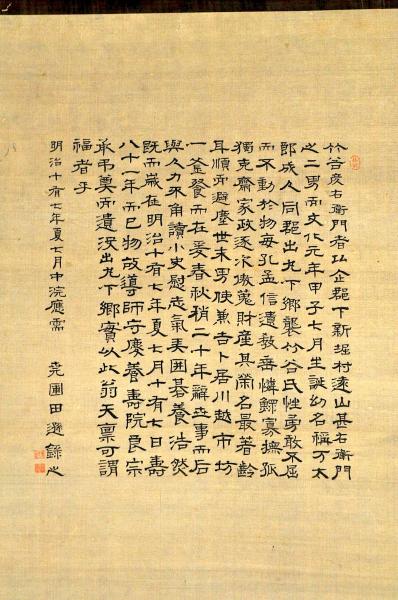 竹谷度右衛門者比企郡下新堀村遠山甚右衛門
之二男而文化元年甲子七月生誕幼名稱万太
郎成久同郡出丸下鄉襲竹谷氏性勇敢不屈
而不動於物每孔孟信遺敎善憐鰥寡撫孤
獨克齋家政逐次蒐財產其榮名最著齡
耳順而避塵世末男使兼吉卜居川越市坊
一釜餐而在爰春秋稍二十年辭世事而后
與久力不角讀小史慰志氣囲碁養浩然
既而歲在明治十有七年夏七月十有七日壽
八十一年而已物故導師守慶養壽院良宗
弔奠而遺沒出丸下鄉實以此翁天稟可謂
福者乎
明治十有七年夏七月中浣應需 尭圃田錄之